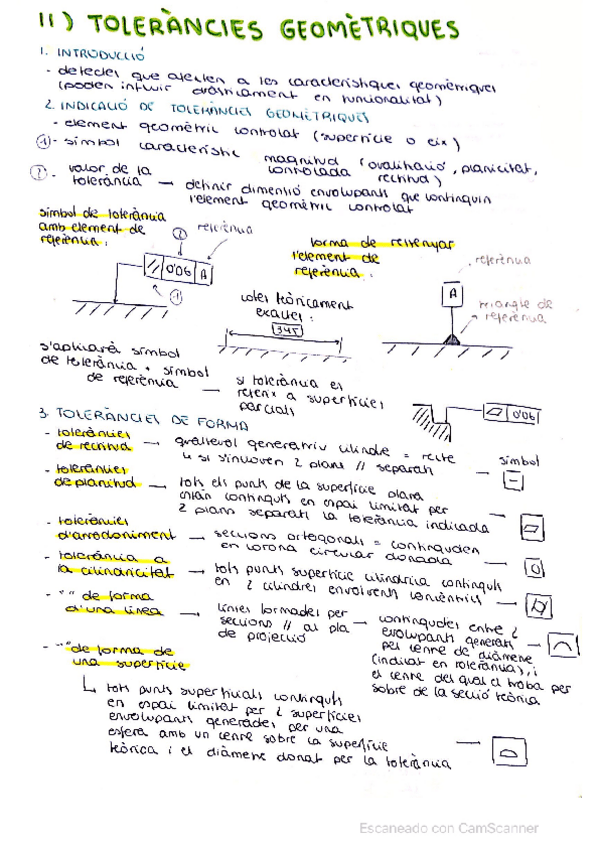 11) TOLERÀNCIES GEOMÈTRIQUES
1. INTRODUCCIÓ
- defectes que afecten a les característiques geomètriques
(poden influir dràsticament en funcionalitat)
2. INDICACIÓ DE TOLERÀNCIES GEOMÈTRIQUES
- element geomètric controlat (superfície o eix)
① - símbol característic
magnitud controlada (ovalització, planicitat, rectitud)
② - valor de la tolerància → definir dimensió envolupants que continguin
l'element geomètric controlat
símbol de tolerància
amb element de
referència:
② referència
// 0'06 A
①
forma de ressenyar
l'element de
referència:
referència
A
triangle de
referència
cotes teòricament
exactes:
345
s'aplicarà símbol
de tolerància + símbol
de referència
— si tolerància es
refereix a superfícies
parcials
0'06
3. TOLERÀNCIES DE FORMA
- toleràncies
de rectitud → qualsevol generatriu cilindre = recte
si s'inclouen 2 plans // separats
símbol
- toleràncies
de planitud → tots els punts de la superfície plana
estan continguts en espai limitat per
2 plans separats la tolerància indicada
- toleràncies
d'arrodoniment → seccions ortogonals = contingudes
en corona circular donada
- tolerància a
la cilindricitat → tots punts superfície cilíndrica continguts
en 2 cilindres envolvents concèntrics
- " " de forma
d'una línea → línies formades per
seccions // al pla
de projecció
→ contingudes entre 2
envolupants generats
per cercle de diàmetre
(indicat en tolerància), i
el centre del qual el troba per
sobre de la secció teòrica
- " " de forma de
una superfície
↳ tots punts superficials continguts
en espai limitat per 2 superfícies
envolupants generades per una
esfera amb un centre sobre la superfície
teòrica i el diàmetre donat per la tolerància
Escaneado con CamScanner